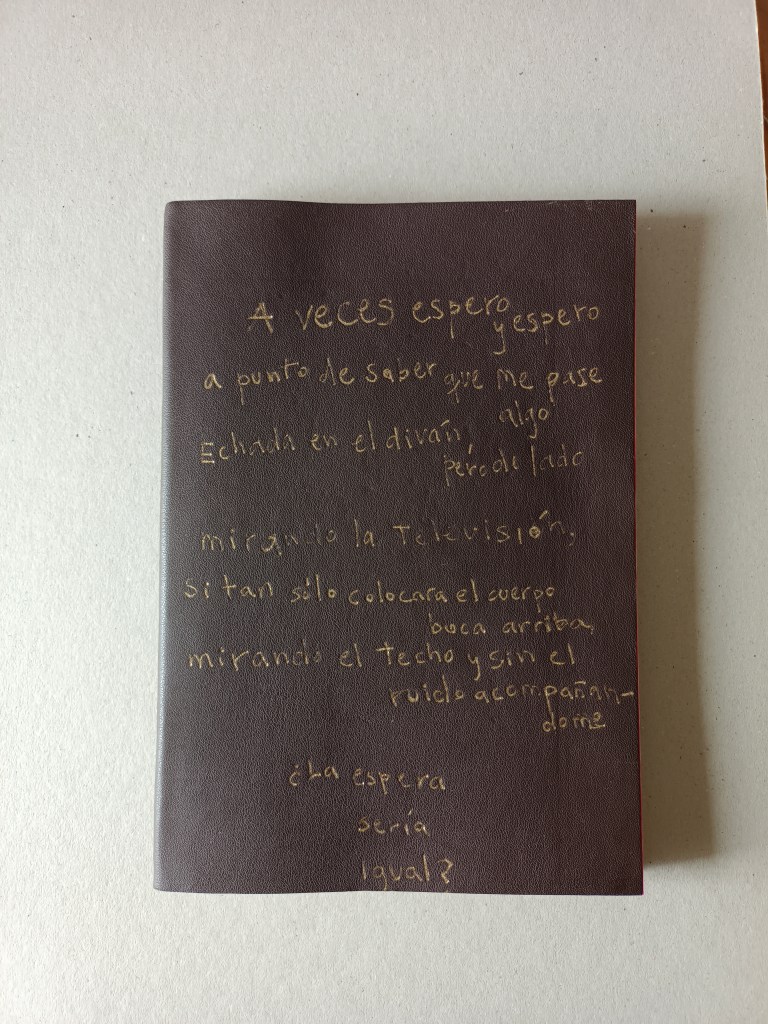 A veces espero
y espero
a punto de saber que me pase
algo
Echada en el diván,
pero de lado
mirando la televisión,
si tan sólo colocara el cuerpo
boca arriba,
mirando el techo y sin el
ruido acompañan-
dome
¿La espera
sería
igual?